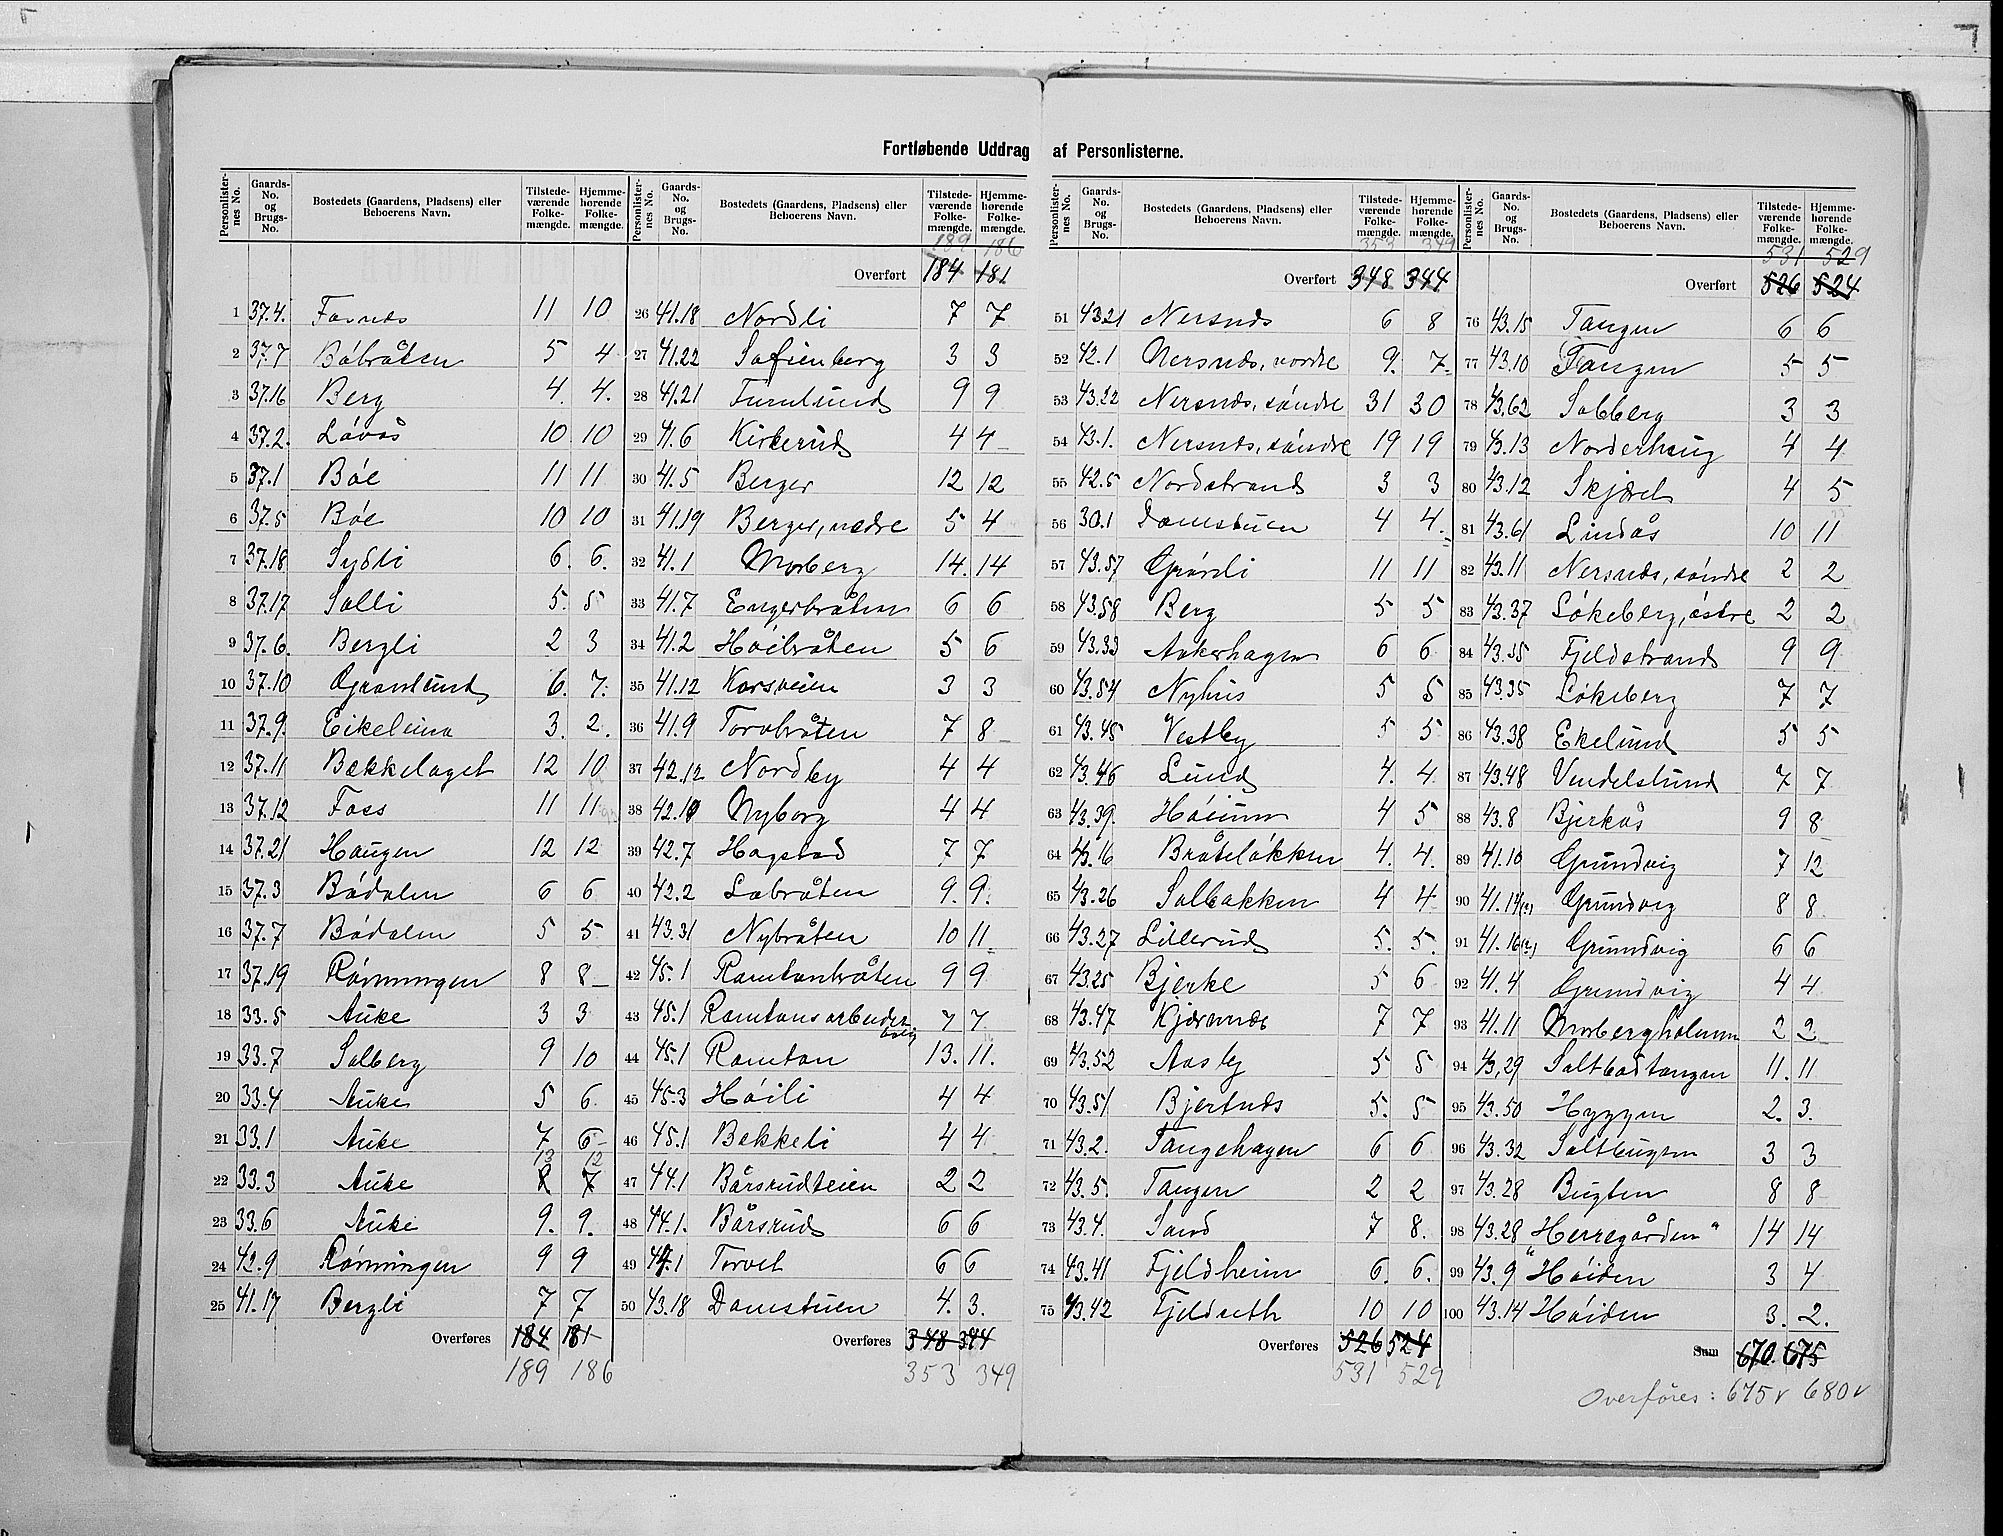 Fortløbende Uddrag af Personlisterne.
Personlister-nes No. | Gaards-No. og Brugs-No. | Bostedets (Gaardens, Pladsens) eller Beboerens Navn. | Tilstede-værende Folke-mængde. | Hjemme-hørende Folke-mængde.
1 37.4. Fosnes 11 10
2 37.7 Bøbråten 5 4
3 37.16 Berg 4. 4.
4 37.2. Løvås 10 10
5 37.1 Bøe 11 11
6 37.5 Bøe 10 10
7 37.18 Sydli 6. 6.
8 37.17 Solli 5. 5
9 37.6. Bergli 2 3
10 37.10 Granlund 6. 7.
11 37.9. Eikeleina 3. 2.
12 37.11 Bækkelaget 12 10
13 37.12 Foss 11 11
14 37.21 Haugen 12 12
15 37.3 Bødalen 6 6
16 37.7 Bødalen 5 5
17 37.19 Rønningen 8 8
18 33.5 Auke 3 3
19 33.7 Solberg 9 10
20 33.4 Auke 5 6
21 33.1 Auke 7 6
22 33.3 Auke 13 12
23 33.6 Auke 9. 9.
24 42.9 Rønningen 9 9
25 41.17 Bergli 7 7
Overføres 184 181
189 186
Personlister-nes No. | Gaards-No. og Brugs-No. | Bostedets (Gaardens, Pladsens) eller Beboerens Navn. | Tilstede-værende Folke-mængde. | Hjemme-hørende Folke-mængde.
189 186
Overført 184 181
26 41.18 Nordli 7 7
27 41.22 Sofienberg 3 3
28 41.21 Furulund 9 9
29 41.6 Kirkerud 4 4
30 41.5 Berger 12 12
31 41.19 Berger, nedre 5 4
32 41.1 Morberg 14. 14
33 41.7 Engerbråten 6 6
34 41.2 Høibråten 5 6
35 41.12 Korsveien 3 3
36 41.9 Torvbråten 7 8
37 42.12 Nordby 4 4
38 42.10 Nyborg 4 4
39 42.7 Hogstad 7 7
40 42.2 Labråten 9. 9.
41 43.31 Nybråten 10 11
42 45.1 Ramtonbråten 9 9
43 45.1 Ramtonsarbeider bolig 7 7
44 45.1 Ramton 13. 11.
45 45.3 Høili 4 4
46 45.1 Bekkeli 4 4
47 44.1 Bårsrudteien 2 2
48 44.1. Bårsrud 6 6
49 44.1 Torvet 6 6
50 43.18 Damstuen 4. 3.
Overføres 348 344
353 349
Personlister-nes No. | Gaards-No. og Brugs-No. | Bostedets (Gaardens, Pladsens) eller Beboerens Navn. | Tilstede-værende Folke-mængde. | Hjemme-hørende Folke-mængde.
353 349
Overført 348 344
51 43.21 Nersnes 6 8
52 42.1 Nersnes, nordre 9. 7.
53 43.22 Nersnes, søndre 31 30
54 43.1. Nersnes, søndre 19 19
55 42.5 Nordstrand 3 3
56 30.1 Damstuen 4 4.
57 43.57 Grønli 11 11
58 43.58 Berg 5 5
59 43.33 Aakerhagen 6 6
60 43.54 Nyhus 5 5
61 43.45 Vestby 5 5
62 43.46 Lund 4. 4.
63 43.39. Høium 4 5
64 43.16 Bråteløkken 4. 4.
65 43.26 Solbakken 4 4
66 43.27 Lillerud 5. 5.
67 43.25 Bjerke 5 6
68 43.47 Kjærnes 7 7
69 43.52 Aasby 5 5
70 43.51 Bjertnes 5. 5
71 43.2. Tangehagen 6 6
72 43.5. Tangen 2 2
73 43.4. Sand 7 8.
74 43.41 Fjeldheim 6. 6.
75 43.42 Fjeldseth 10 10
Overføres 526 524
531 529
Personlister-nes No. | Gaards-No. og Brugs-No. | Bostedets (Gaardens, Pladsens) eller Beboerens Navn. | Tilstede-værende Folke-mængde. | Hjemme-hørende Folke-mængde.
531 529
Overført 526 524
76 43.15 Tangen 6 6
77 43.10 Tangen 5 5
78 43.62 Solberg 3 3
79 43.13 Norderhaug 4 4
80 43.12 Skjæret 4 5
81 43.61 Lindås 10 11
82 43.11 Nersnes, søndre 2 2
83 43.37 Løkeberg, østre 2 2
84 43.55 Fjeldstrand 9 9
85 43.35 Løkeberg 7 7
86 43.38 Ekelund 5 5
87 43.48 Vendelslund 7 7
88 43.8 Bjerkås 9 8
89 41.10 Grundvig 7 12
90 41.14(2) Grundvig 8 8
91 41.16(2) Grundvig 6 6
92 41.4 Grundvig 4 4
93 41.11 Morbergholmen 2 2
94 43,29 Saltbodtangen 11. 11
95 43.50 Hyggen 2. 3.
96 43.32 Saltbugten 3 3
97 43.28 Bugten 8 8
98 43.28 "Herregården" 14 14
99 43.9 Høiden 3 4
100 43.14 Høiden 3. 2.
Sum 670. 675
Overføres: 675 v 680 v